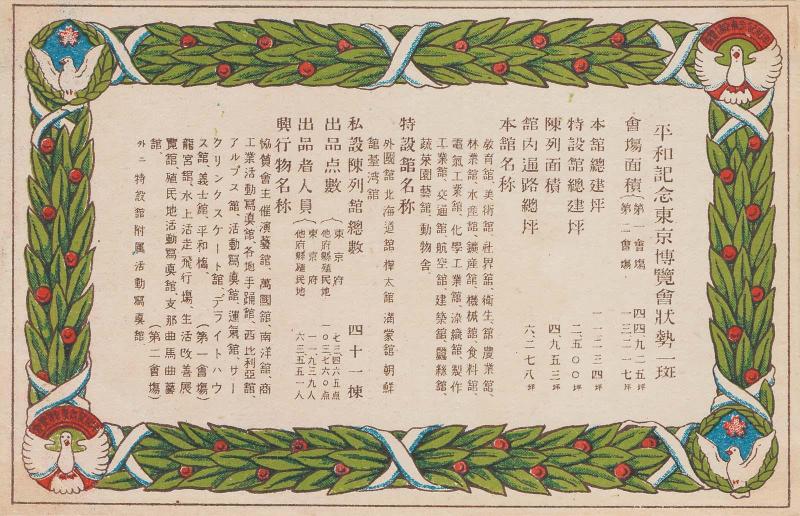 平和記念東京博覽會狀勢一斑
會塲面積(第一會塲、 四四九二五坪
(第二會塲、 一三二一七坪
本館總建坪 一一二三四坪
特設館總建坪 二五〇〇坪
陳列面積 四九五三坪
館内通路總坪 六、二七八坪
本館名称
敎育館、美術館、社界舘、衛生舘、農業舘、
林業舘、水産舘、鑛産舘、機械舘、食料舘
電氣工業舘、化學工業舘、染織舘、製作
工業舘、交通舘、航空舘、建築舘、蠶絲舘、
蔬菜園藝舘、動物舎、
特設館名称
外國舘 北海道舘 樺太舘 滿蒙舘 朝鮮
舘 臺湾舘
私設陳列舘總數 四十一棟
出品点數(東京府 七三四六五点
他府縣殖民地 一〇三七六〇点
出品者人員(東京府 一一九三九人
他府縣殖民地 六三五五一人
興行物名称
協賛會主催演藝舘、萬國舘、南洋舘、商
工業活動寫眞舘、各地手踊舘、西比利亞舘、
アルプス舘、活動寫眞舘、運氣舘、サー
クリングスケート舘、デライトハウ
ス舘、義士舘、平和塔、 (第一會塲)
龍宮舘、水上活走飛行塲、生活改善展
覽舘、殖民地活動寫眞舘、支那曲馬曲藝
舘、 (第二會塲)
外ニ特設舘附属活動寫眞舘